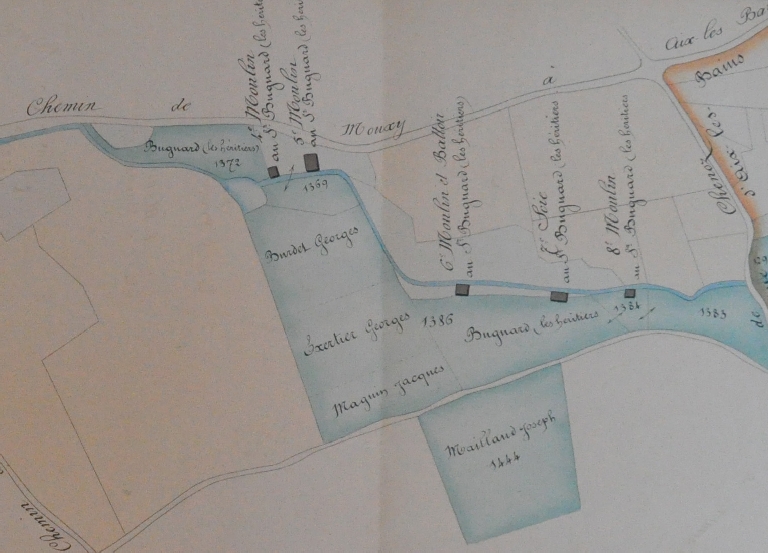 Aux les Ba
Bains
Chemin de Mouxy à
4e Moulin
au Sr Bugnard (les hérit
5e Moulin
au Sr Bugnard (les hérit
6e Moulin et Battoir
au Sr Bugnard (les héritiers
7e Scie
au Sr Bugnard (les héritiers
8e Moulin
au Sr Bugnard (les héritiers
Bugnard (les héritiers)
1372
1369
Burdet Georges
Exertier Georges
1386
Bugnard (les héritiers
1384
1383
de
Magnin Jacques
Mailland Joseph
1444
Chemin